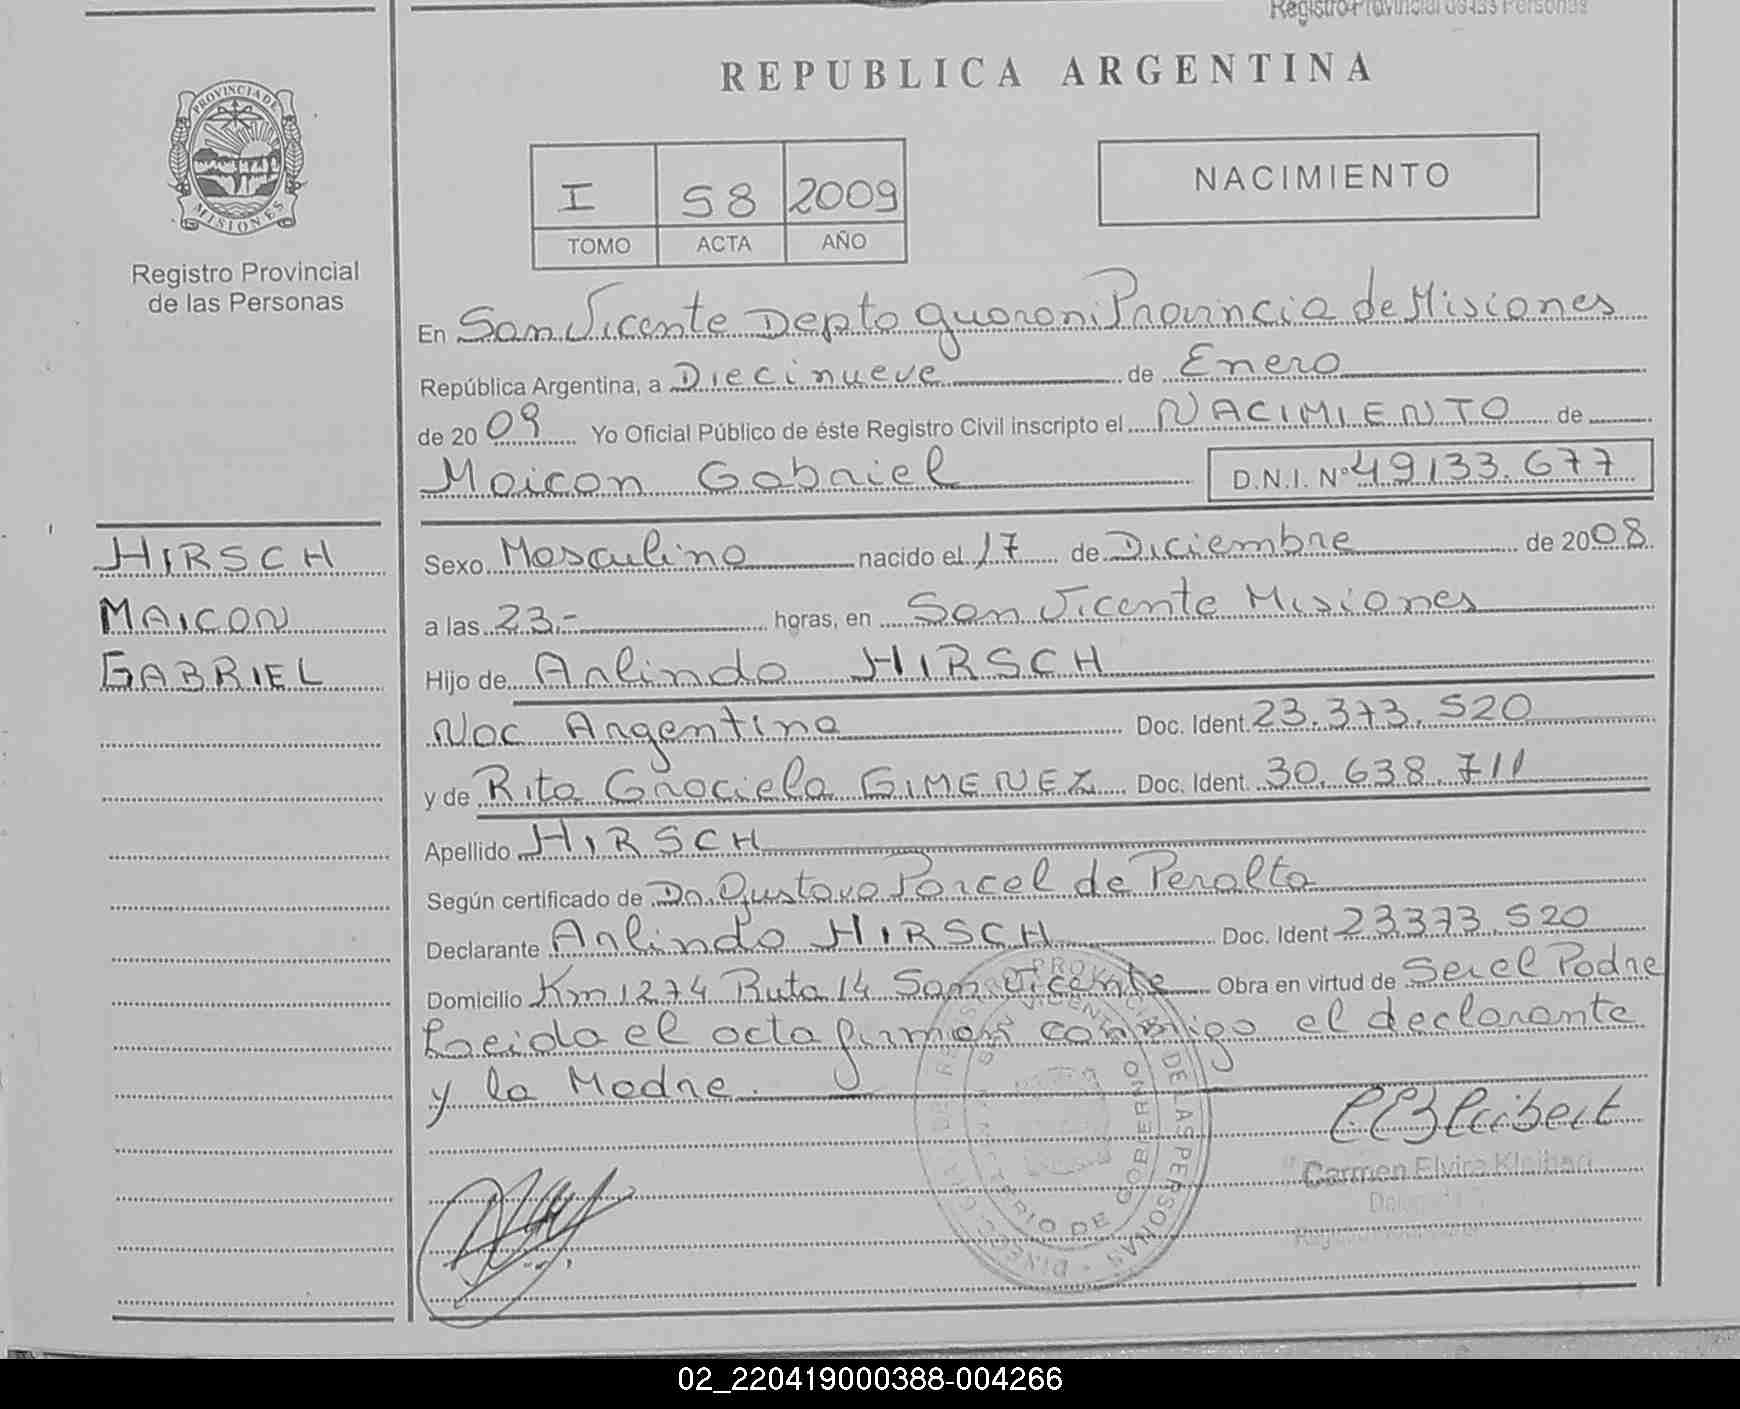 Registro Provincial de las Personas
REPUBLICA ARGENTINA
PROVINCIA DE
MISIONES
Registro Provincial
de las Personas
I 58 2009
TOMO ACTA AÑO
NACIMIENTO
En San Vicente Depto guarani Provincia de Misiones
República Argentina, a Diecinueve de Enero
de 2009 Yo Oficial Público de éste Registro Civil inscripto el NACIMIENTO de
Maicon Gabriel D.N.I. Nº 49133.677
HIRSCH
MAICON
GABRIEL
Sexo Masculino nacido el 17 de Diciembre de 2008
a las 23.- horas, en San Vicente Misiones
Hijo de Arlindo HIRSCH
Nac Argentina Doc. Ident. 23.373.520
y de Rita Graciela GIMENEZ Doc. Ident. 30.638.711
Apellido HIRSCH
Según certificado de Dr. Gustavo Porcel de Peralta
Declarante Arlindo HIRSCH Doc. Ident 23373.520
Domicilio Km 1274 Ruta 14 San Vicente Obra en virtud de Ser el Padre
Leida el acta firman conmigo el declarante
y la Madre.
DE LAS PERSONAS
MINISTERIO DE GOBIERNO
SAN VICENTE
Carmen Elvira Kleibert
02_220419000388-004266